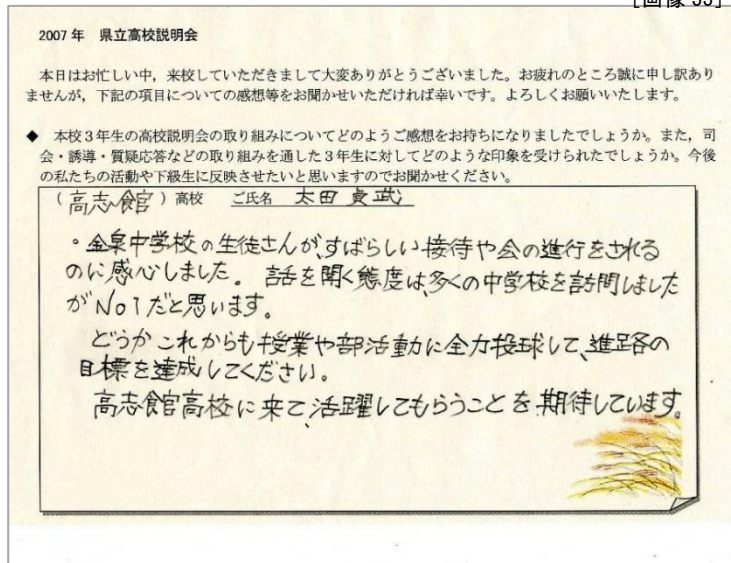 2007年　県立高校説明会
本日はお忙しい中，来校していただきまして大変ありがとうございました。お疲れのところ誠に申し訳あり
ませんが，下記の項目についての感想等をお聞かせいただければ幸いです。よろしくお願いいたします。
◆　本校３年生の高校説明会の取り組みについてどのようご感想をお持ちになりましたでしょうか。また，司
会・誘導・質疑応答などの取り組みを通した３年生に対してどのような印象を受けられたでしょうか。今後
の私たちの活動や下級生に反映させたいと思いますのでお聞かせください。
（高志館）高校　ご氏名　太田貞武
・金泉中学校の生徒さんが、すばらしい接待や会の進行をされる
のに感心しました。話を聞く態度は、多くの中学校を訪問しました
がNo1だと思います。
どうかこれからも授業や部活動に全力投球して、進路の
目標を達成してください。
高志館高校に来て、活躍してもらうことを期待しています。